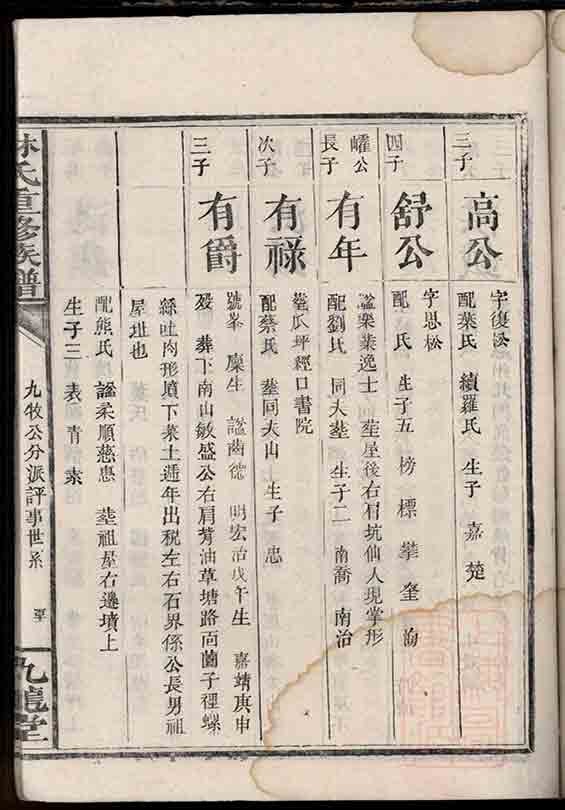 三子
高公
字復松
配葉氏 續羅氏 生子 嘉 楚
四子
舒公
字思松
配 氏 生子五 榜 標 攀 奎
巏公
長子
有年
諡樂業逸士 塟屋後右眉坑仙人現掌形
配劉氏 同夫塟 生子二 南喬 南治
次子
有祿
塟瓜坪經口書院
配蔡氏 塟同夫山 生子 忠
三子
有爵
號峯 廩生 諡齒德 明宏治戊午生 嘉靖庚申
歿 葬下南山敏盛公右肩背油草塘路面薗子徑螺
絲吐肉形墳下菜土遞年出稅左右石界係公長男祖
屋址也
配熊氏 諡柔順慈惠 塟祖屋右邊墳上
生子三 表 青 素
林氏重修族譜
九牧公分派評事世系
九龍堂